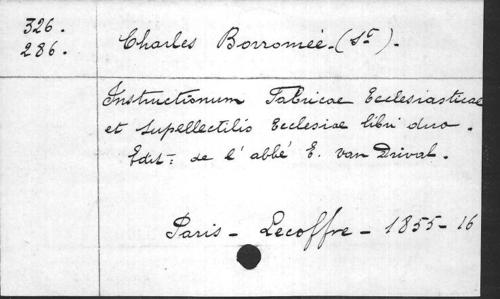 326.
286.
Charles Borromée. (St).
Instructionum Fabricae Ecclesiasticae
et Supellectilis Ecclesiae libri duo.
Edit: de l'abbé E. van Drival.
Paris - Lecoffre - 1855 - 16